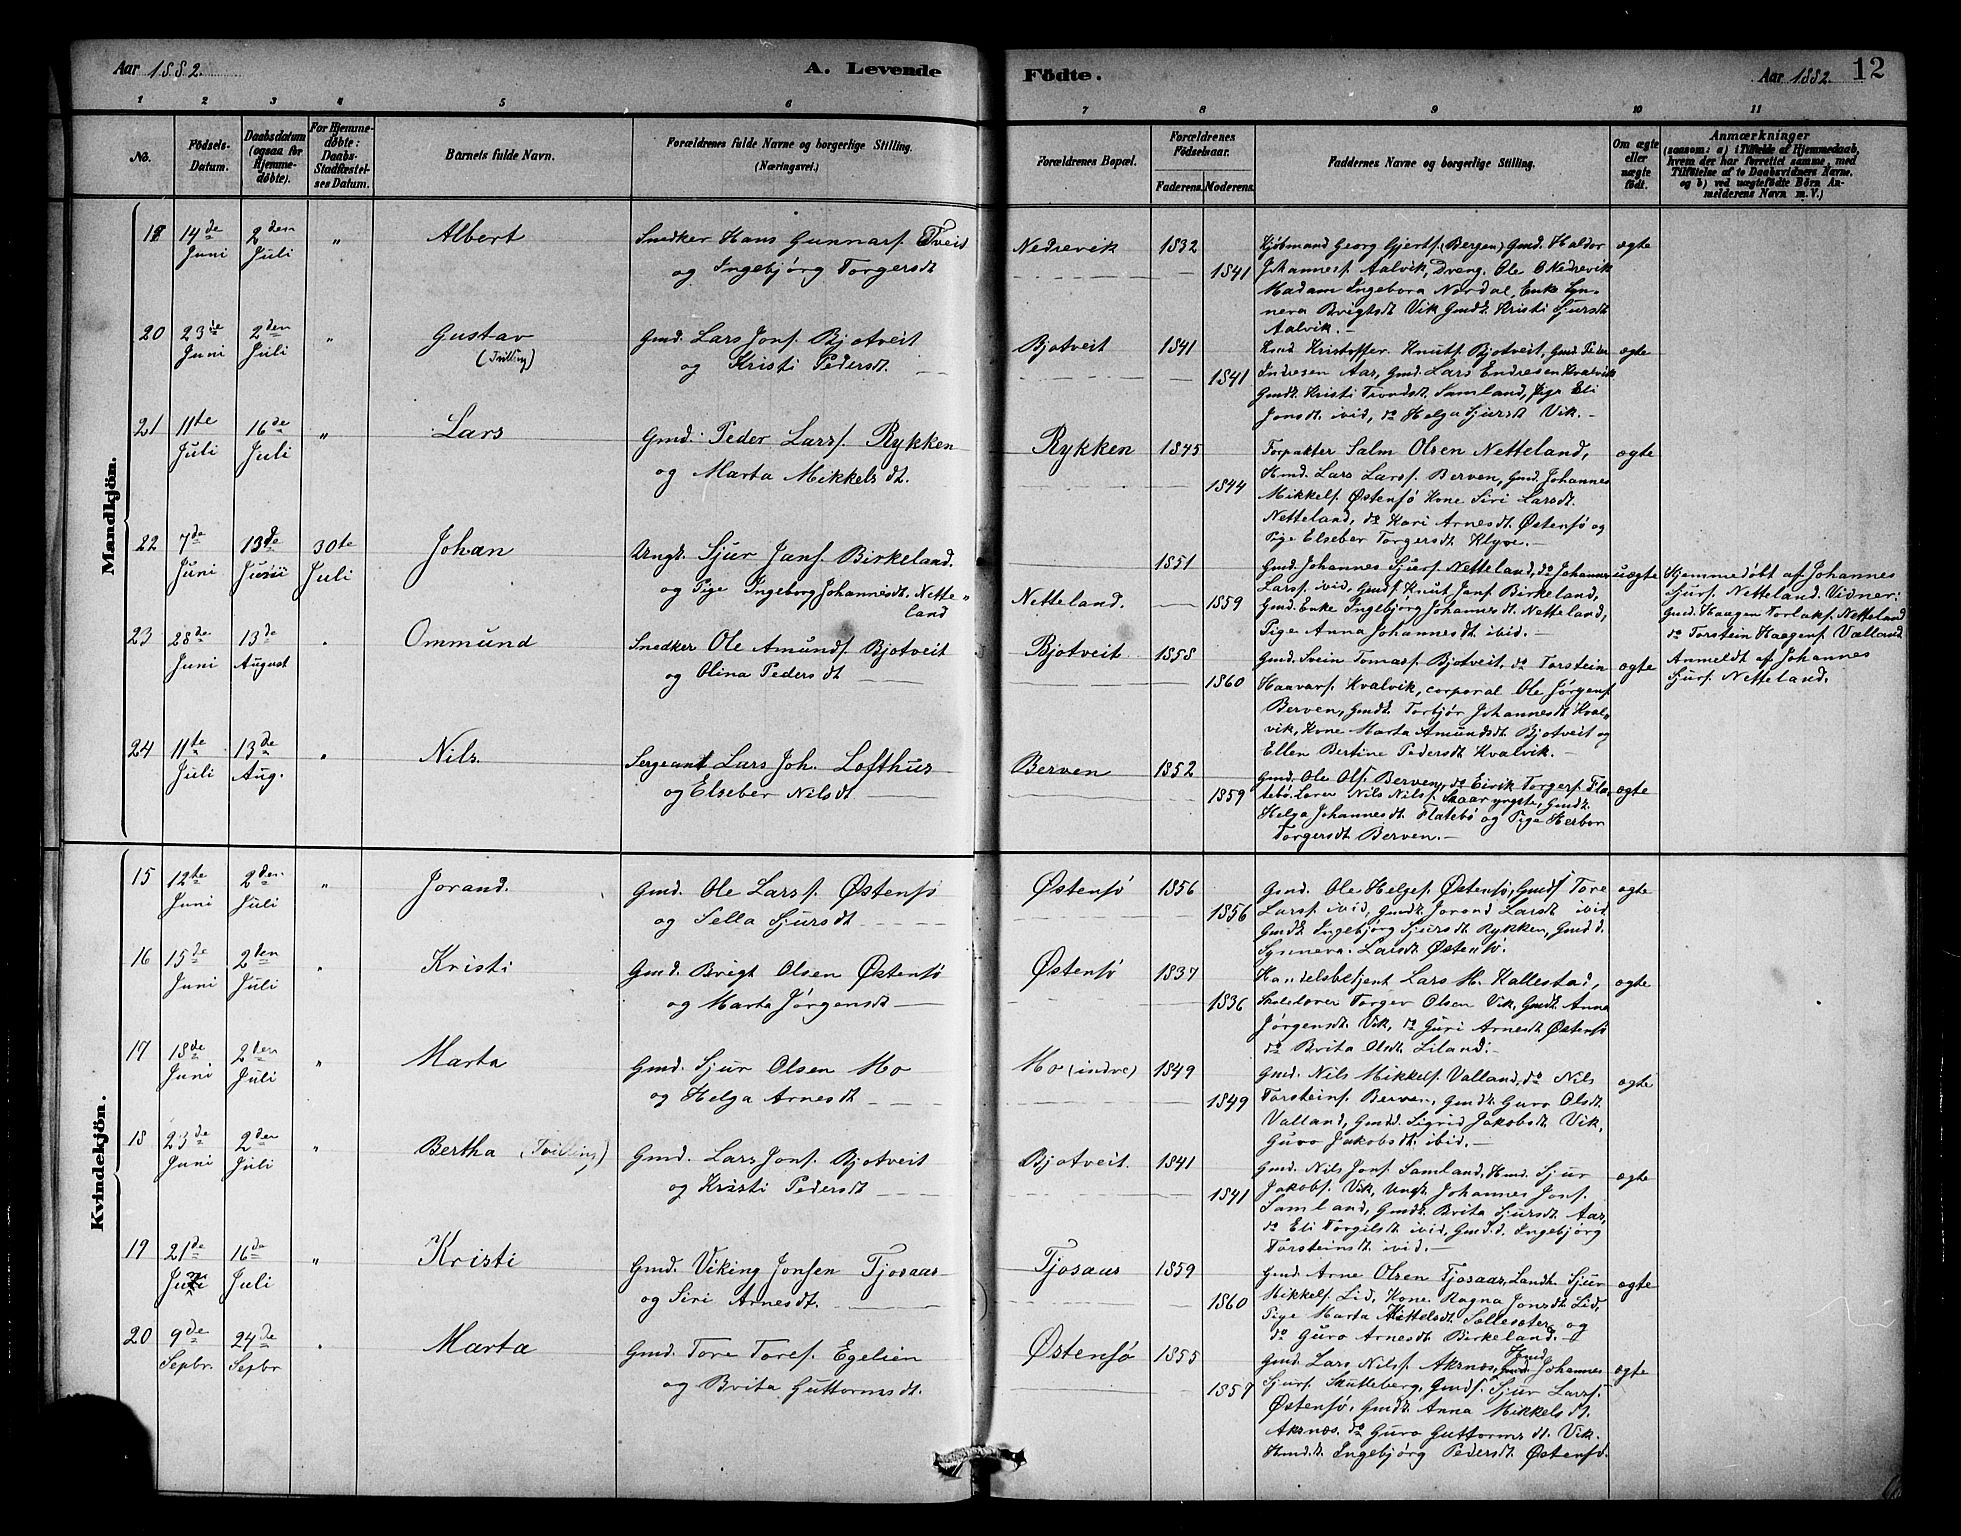 Aar 1882.
A. Levende
Födte.
Aar 1882.
12
1 2 3 4 5 6 7 8 9 10 11
No.
Födsels-
Datum.
Daabsdatum
(ogsaa for
Hjemme-
döbte).
For Hjemme-
döbte:
Daabs-
Stadfæstel-
ses Datum.
Barnets fulde Navn.
Forældrenes fulde Navne og borgerlige Stilling.
(Næringsvei.)
Forældrenes Bopæl.
Forældrenes
Födselsaar.
Faderens. Moderens.
Faddernes Navne og borgerlige Stilling.
Om ægte
eller
uægte
födt.
Anmærkninger
(saasom: a) i Tilfælde af Hjemmedaab,
hvem der har forrettet samme, med
Tilföielse af to Daabsvidners Navne,
og b) ved uægtefödte Börn An-
melderens Navn m. V.)
Mandkjön.
14de Juni 2den Juli " Albert
Snedker Hans Gunnars. Tveid
og Ingebjörg Torgersdt
Nedrevik 1832 1841
Kjöbmand Georg Gjerts. (Bergen) Gmd. Haldor
Johanness. Aalvik, Dreng. Ole O Nedrevik
Madam Ingebora Nordal, Enke Syn-
neva Brigtsdt Vik Gmdt. Kristi Sjursdt
Aalvik.
ægte
20 23de Juni 2den Juli " Gustav
(Tvilling)
Gmd. Lars Jons. Bjotveit
og Kristi Pedersdt.
Bjotveit 1841 1841
Kmd Kristoffer Knuts. Bjotveit, Gmd. Peder
Indresen Aar, Gmd. Lars Endresen Kvalvik
Gmdt. Kristi Trondsdt. Samland, Pige Eli
Jonsdt. ibid, do Helga Sjursdt Vik.
ægte
21 11te Juli 16de Juli " Lars
Gmd. Peder Larss. Rykken
og Marta Mikkelsdt.
Rykken 1845 1844
Forpakter Salm Olsen Netteland,
Hmd. Lars Larss. Berven, Gmd. Johannes
Mikkels. Østensö Kone Siri Larsdt.
Netteland, do Kari Arnesdt Østensö og
Pige Elseber Torgersdt Klyve.
ægte
22 7de Juni 13de Juni 30te Juli Johan
Ungk. Sjur Jans. Birkeland.
og Pige Ingeborg Johannesdt. Nette-
land
Netteland. 1851 1859
Gmd. Johannes Sjurs. Netteland, do Johannes
Larss. ibid, Gmds. Knut Jans. Birkeland,
Gmd. Enke Ingebjörg Johannesdt. Netteland,
Pige Anna Johannesdt ibid.
uægte
Hjemmedöbt af Johannes
Sjurs. Netteland. Vidner:
Gmd. Haagen Torlaks. Netteland
do Torstein Haagens. Vælland
Anmeldt af Johannes
Sjurs. Netteland.
23 28de Juni 13de August " Ommund
Snedker Ole Amunds. Bjotveit
og Olina Pedersdt
Bjotveit 1858 1860
Gmd. Svein Tomass. Bjotveit, do Torstein
Haavars. Kvalvik, corporal Ole Jörgens.
Berven, Gmdt. Torbjör Johannesdt Kval-
vik, Kone Marta Amundsdt Bjotveit og
Ellen Bertine Pedersdt Kvalvik.
ægte
24 11te Juli 13de Aug. " Nils.
Sergeant Lars Joh. Lofthus
og Elseber Nilsdt
Berven 1852 1859
Gmd. Ole Ols. Berven, do Eirik Torgers. Fla-
tebö. Lærer Nils Nils. Skaar yngste, Gmdt.
Helga Johannesdt. Flatebö og Pige Herbor
Torgersdt Berven.
ægte
Kvindekjön.
15 12te Juni 2den Juli " Jorand.
Gmd. Ole Larss. Østensö
og Sella Sjursdt
Østensö 1856 1856
Gmd. Ole Helges. Østensö, Gmds. Tore
Larss. ibid, Gmdt. Jorand Larsdt ibid
Gmdt. Ingebjörg Sjursdt Rykken, Gmd d.
Synneva Larsdt Østensö.
ægte
16 15de Juni 2den Juli " Kristi
Gmd. Brigt Olsen Østensö
og Marta Jörgensdt
Østensö 1837 1836
Handelsbetjent Lars M. Kallestad,
Skolelærer Torger Olsen Vik, Gmdt. Anna
Jörgensdt. Vik, do Guri Arnesdt Østensö
do Brita Olsdt Liland.
ægte
17 18de Juni 2den Juli " Marta
Gmd. Sjur Olsen Mo
og Helga Arnesdt
Mo (indre) 1849 1849
Gmd. Nils Mikkels. Valland, do Nils
Torsteins. Berven, Gmdt. Guro Olsdt.
Valland, Gmdd. Sigrid Jakobsdt Vik,
Guro Jakobsdt ibid.
ægte
18 23de Juni 2den Juli " Bertha (Tvilling)
Gmd. Lars Jons. Bjotveit
og Kristi Pedersdt
Bjotveit. 1841 1841
Gmd. Nils Jons. Samland, Hmd. Sjur
Jakobs. Vik, Ungk. Johannes Jons.
Samland, Gmdt. Brita Sjursdt. Aar,
do Eli Torgilsdt ibid, Gmd.d. Ingebjörg
Torsteinsdt ibid.
ægte
19 21de 16de Juli " Kristi
Gmd. Viking Jonsen Tjosaas
og Siri Arnesdt.
Tjosaas 1859 1860
Gmd. Arne Olsen Tjosaas, Landh. Sjur
Mikkels. Lid, Kone Ragna Jonsdt Lid,
Pige Marta Kittelsdt Sollesæter og
do Guro Arnesdt Birkeland.
ægte
20 9de Sepbr. 24de Sepbr " Marta
Gmd. Tore Tores. Egelien
og Brita Guttormsdt.
Østensö 1855 1857
Gmd. Lars Nilss. Aksnæs, Hmd Johannes
Sjurs. Skutleberg, Gmds. Sjur Larss.
Østensö, Gmdt. Anna Mikkelsdt.
Aksnæs. do Guro Guttormsdt. Vik.
Hmd.d. Ingebjörg Pedersdt Østensö.
ægte